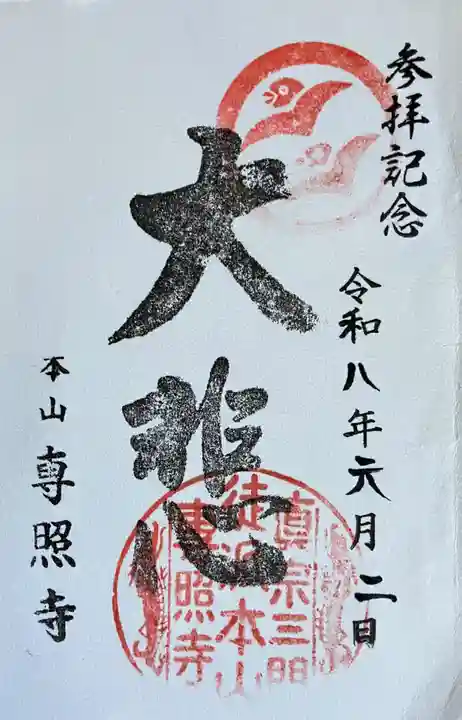 参拝記念
令和八年六月二日
大悲
本山専照寺
真宗三門
徒派本山
専照寺